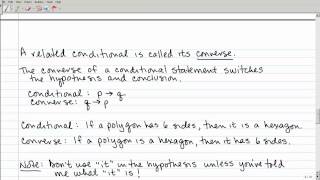 A related conditional is called its converse.
The converse of a conditional statement switches
the hypothesis and conclusion.
Conditional: p → q
Converse: q → p
Conditional: If a polygon has 6 sides, then it is a hexagon.
Converse: If a polygon is a hexagon, then it has 6 sides.
Note: Don't use "it" in the hypothesis unless you've told
me what "it" is!